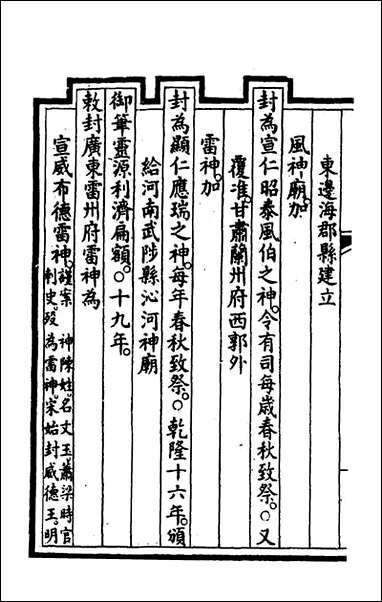 東邊海郡縣建立
風神廟。加
封為宣仁昭泰風伯之神。令有司每歲春秋致祭。○又
覆准。甘肅蘭州府西郭外
雷神。加
封為顯仁應瑞之神。每年春秋致祭。○乾隆十六年。頒
給河南武陟縣沁河神廟
御筆靈源利濟扁額。○十九年。
敕封廣東雷州府雷神為
宣威布德雷神。謹案 神陳姓。名文玉。蕭梁時官
刺史。歿為雷神。宋始封威德王。明